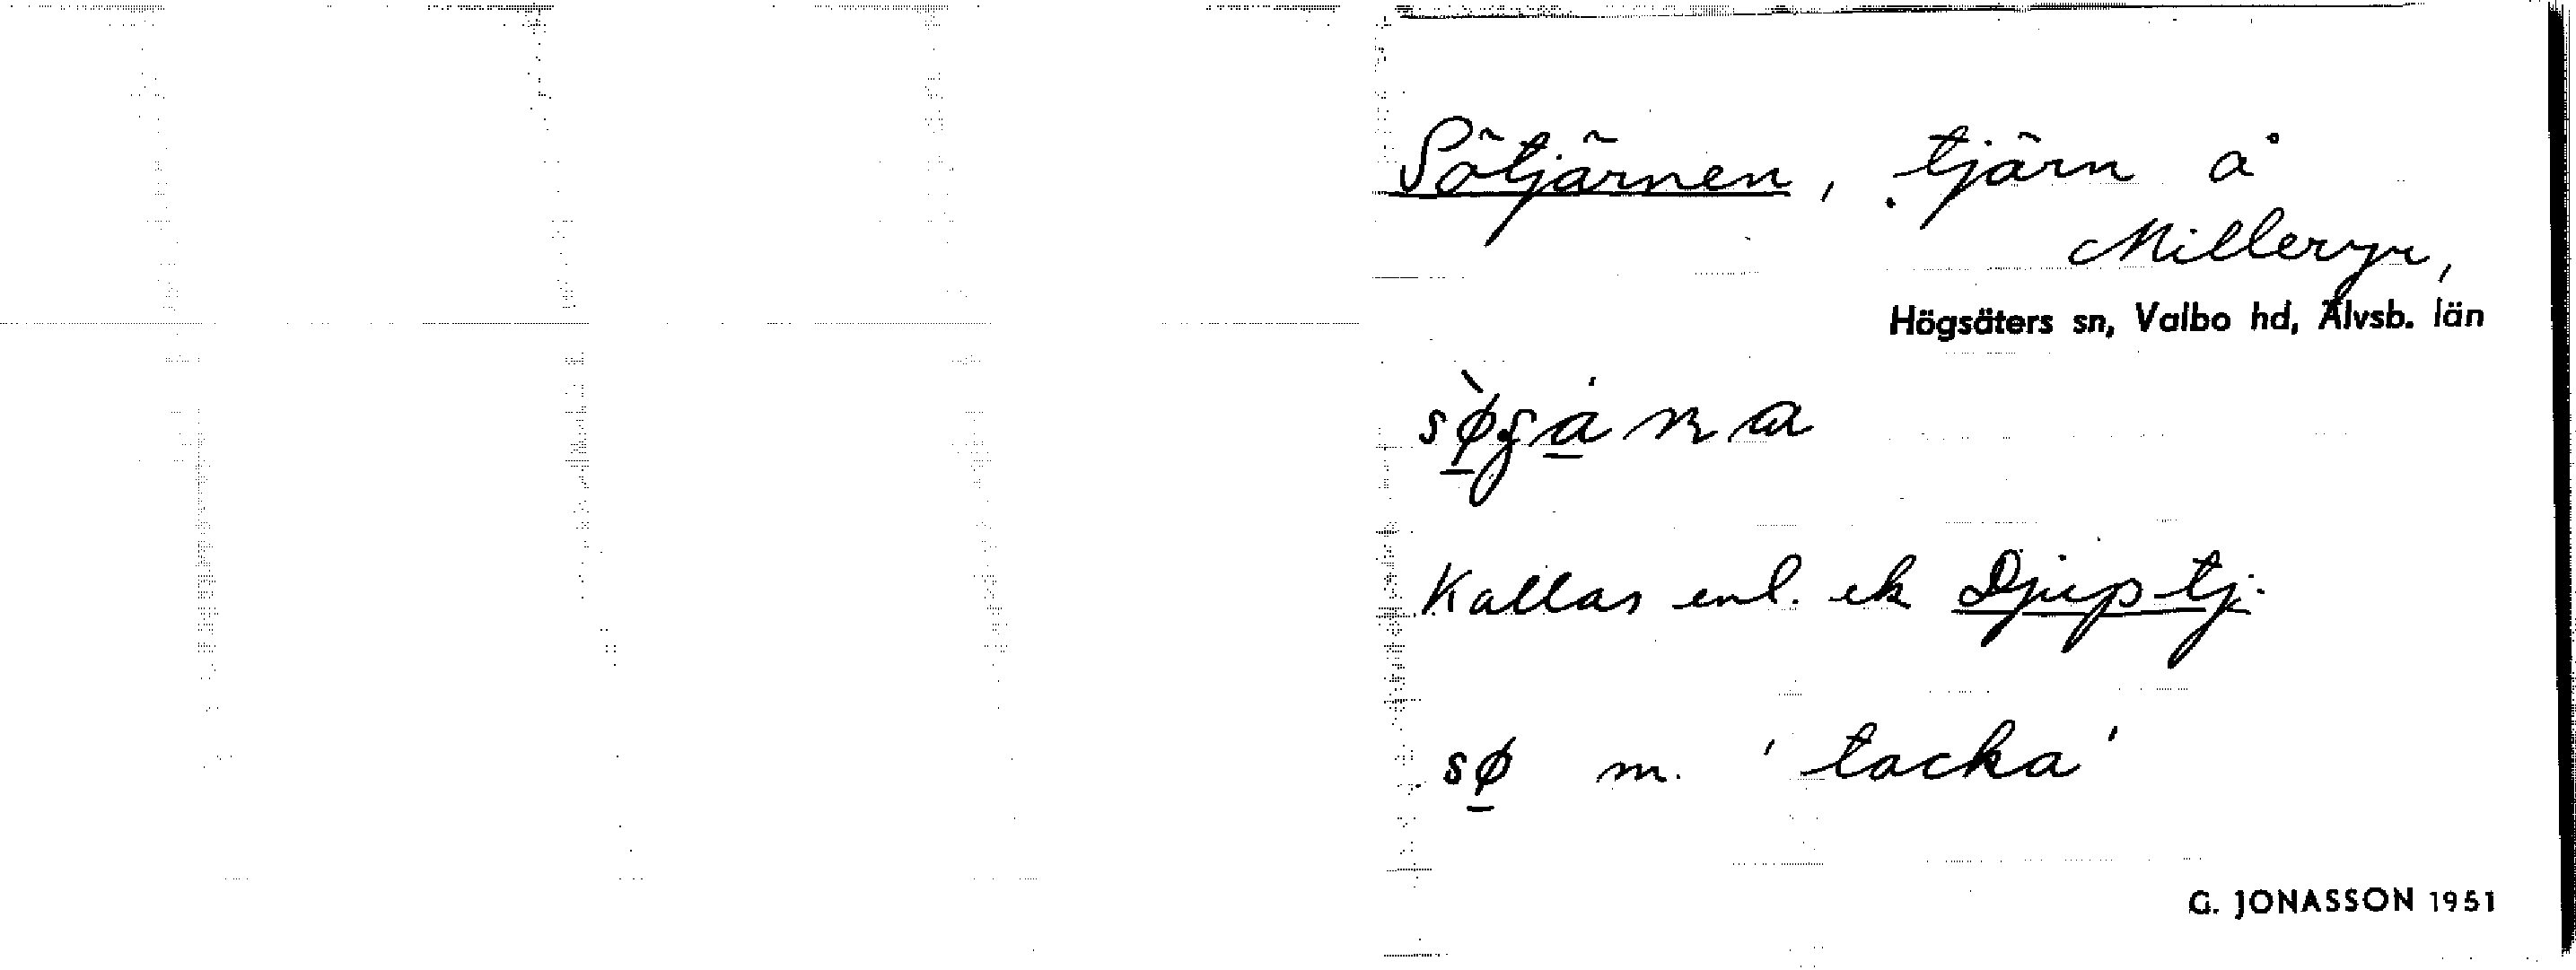 Sötjärnen, tjärn å
Milleryr,
Högsäters sn, Valbo hd, Älvsb. län
Kallas enl. ek Djuptj.
sø m. 'tacka'
G. JONASSON 1951